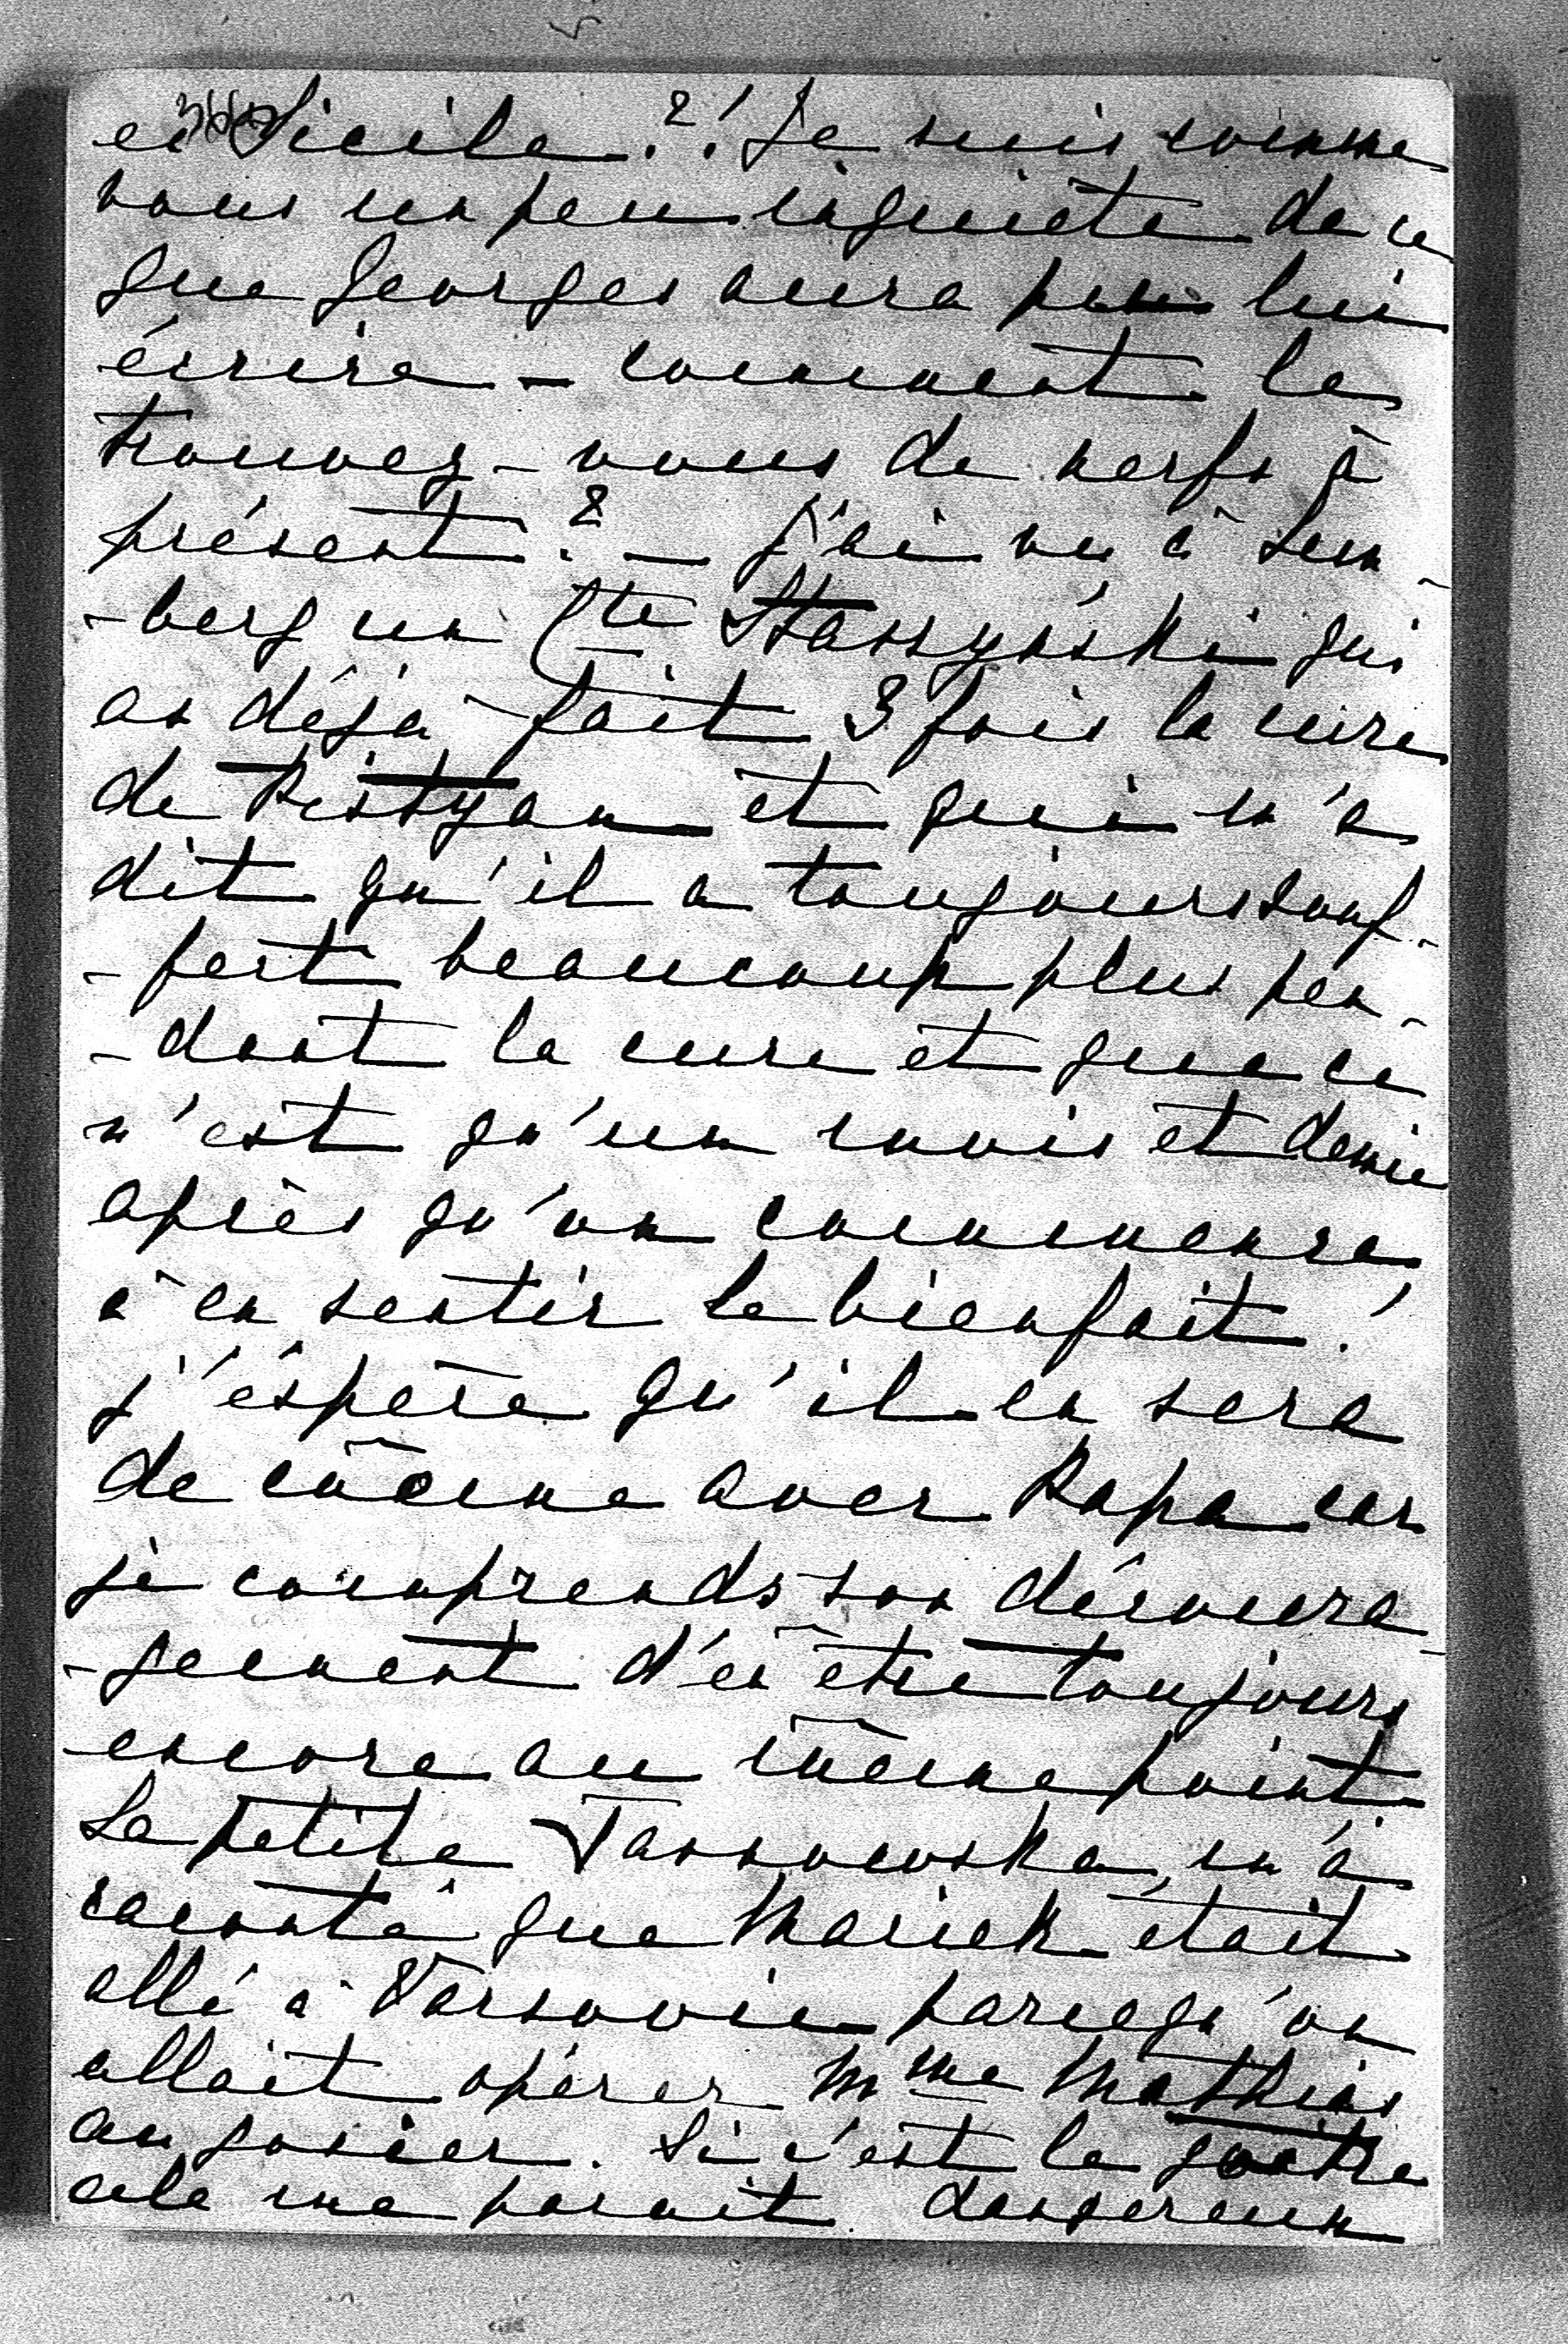 en Sicile ?! Je suis comme
vous un peu inquiète de ce
que Georges aura pu lui
écrire – comment le
trouvez-vous de nerfs à
présent ? – j'ai vu à Lem-
-berg un Cte Starzyński qui
a déjà fait 3 fois la cure
de Pistyan et qui m'a
dit qu'il a toujours souf-
-fert beaucoup plus pen-
-dant la cure et que ce
n'est qu'un mois et demie
après qu'on commence
à en sentir le bienfait !
j'éspère qu'il en sera
de même avec Papa car
je comprends son découra-
-gement d'en être toujours
encore au même point.
La petite Tarnowska m'a
raconté que Mariek était
allé à Varsovie parcequ'on
allait opérer Mme Mathias
au gosier. Si c'est le goître
cela me parait dangereux